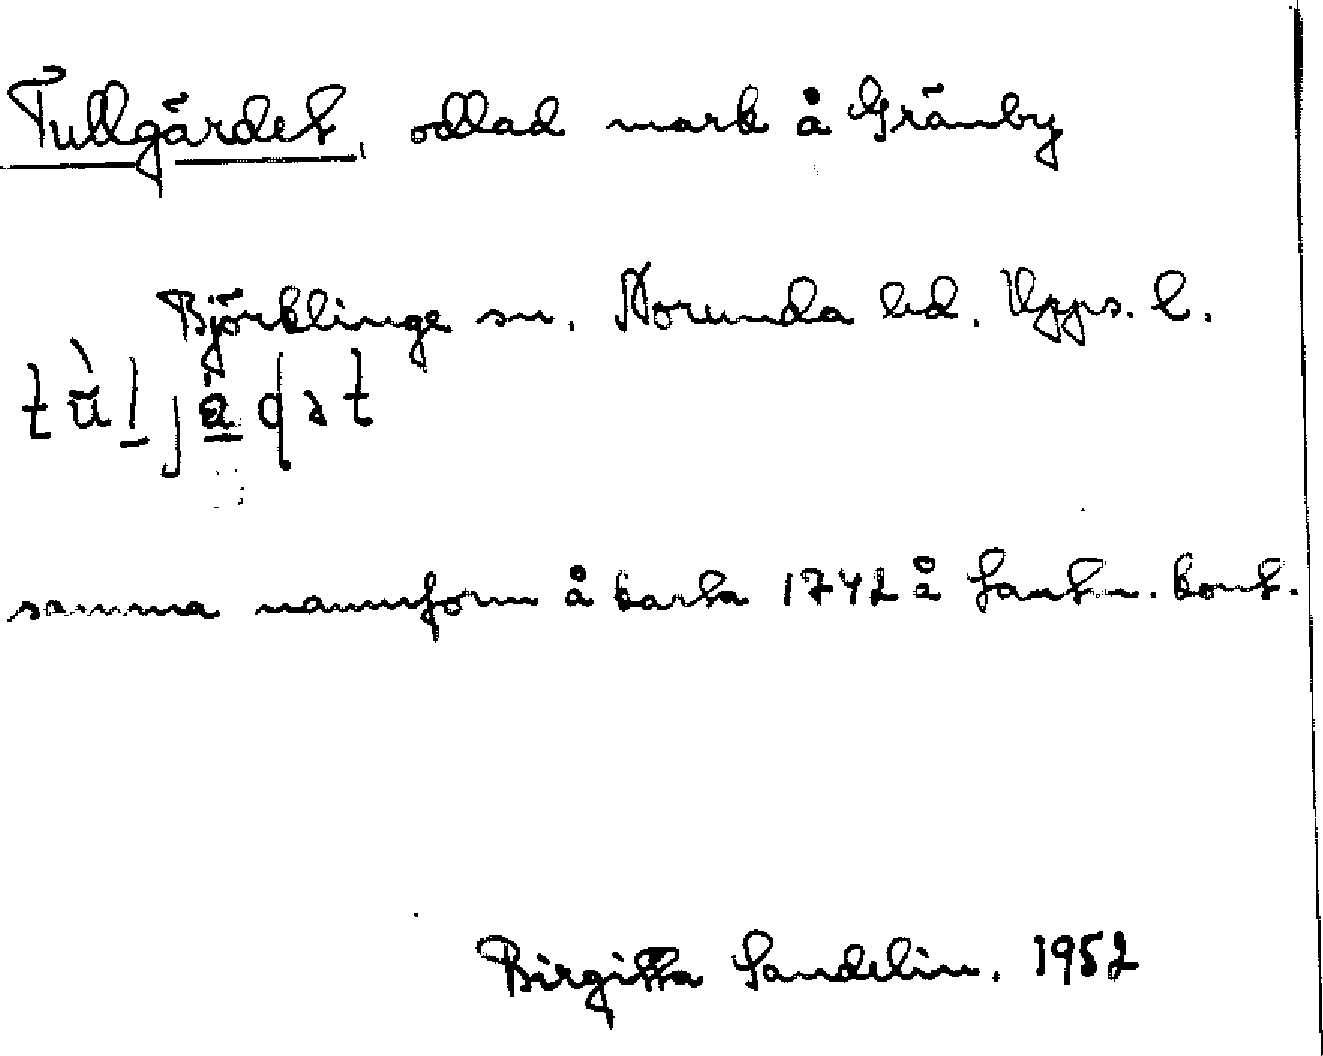 Tullgärdet, odlad mark å Gränby
Björklinge sn. Norunda hd. Upps. l.
samma namnform å karta 1742 å Lantm. kont.
Birgitta Sandelin. 1952